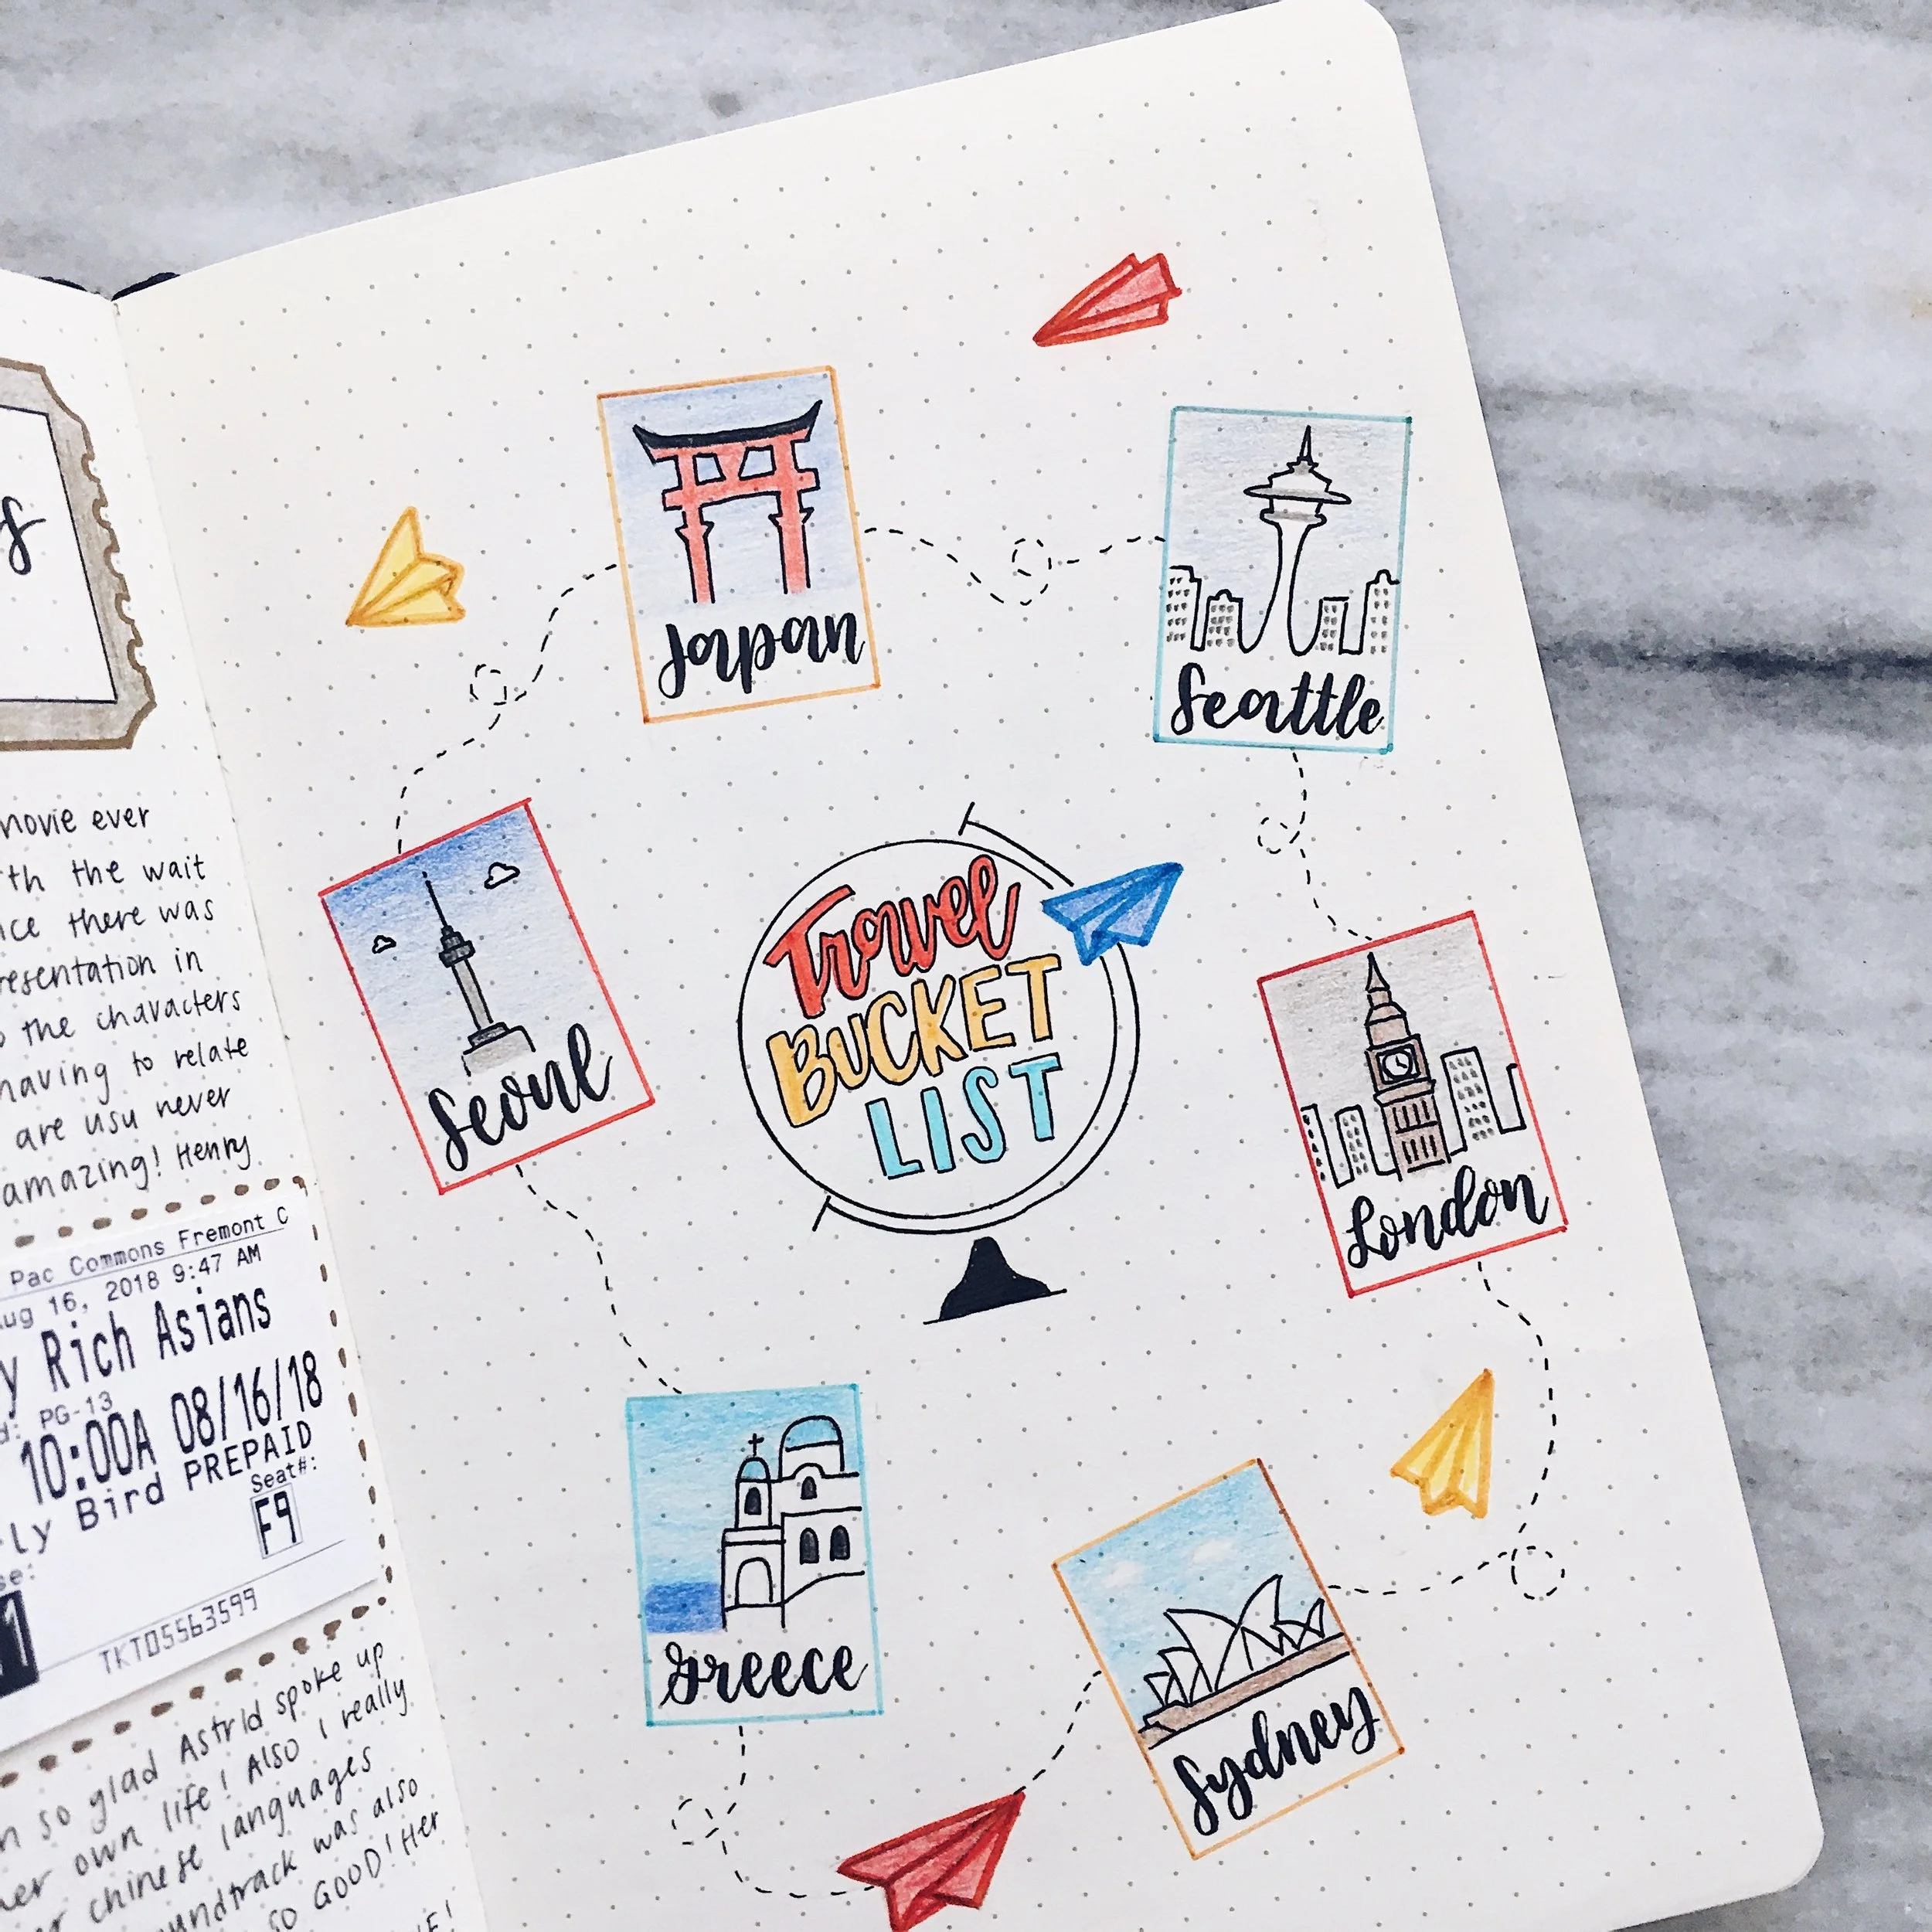 s
movie ever
th the wait
there was
resentation in
the characters
having to relate
are usu never
amazing! Henry
Pac Commons Fremont C
Aug 16, 2018 9:47 AM
y Rich Asians
PG-13
10:00A 08/16/18
ly Bird PREPAID
Seat#:
F9
1
TKT05563599
so glad Astrid spoke up
her own life! Also I really
chinese languages
soundtrack was also
so GOOD! Her
Japan
Seattle
Seoul
Travel
BUCKET
LIST
London
Greece
Sydney